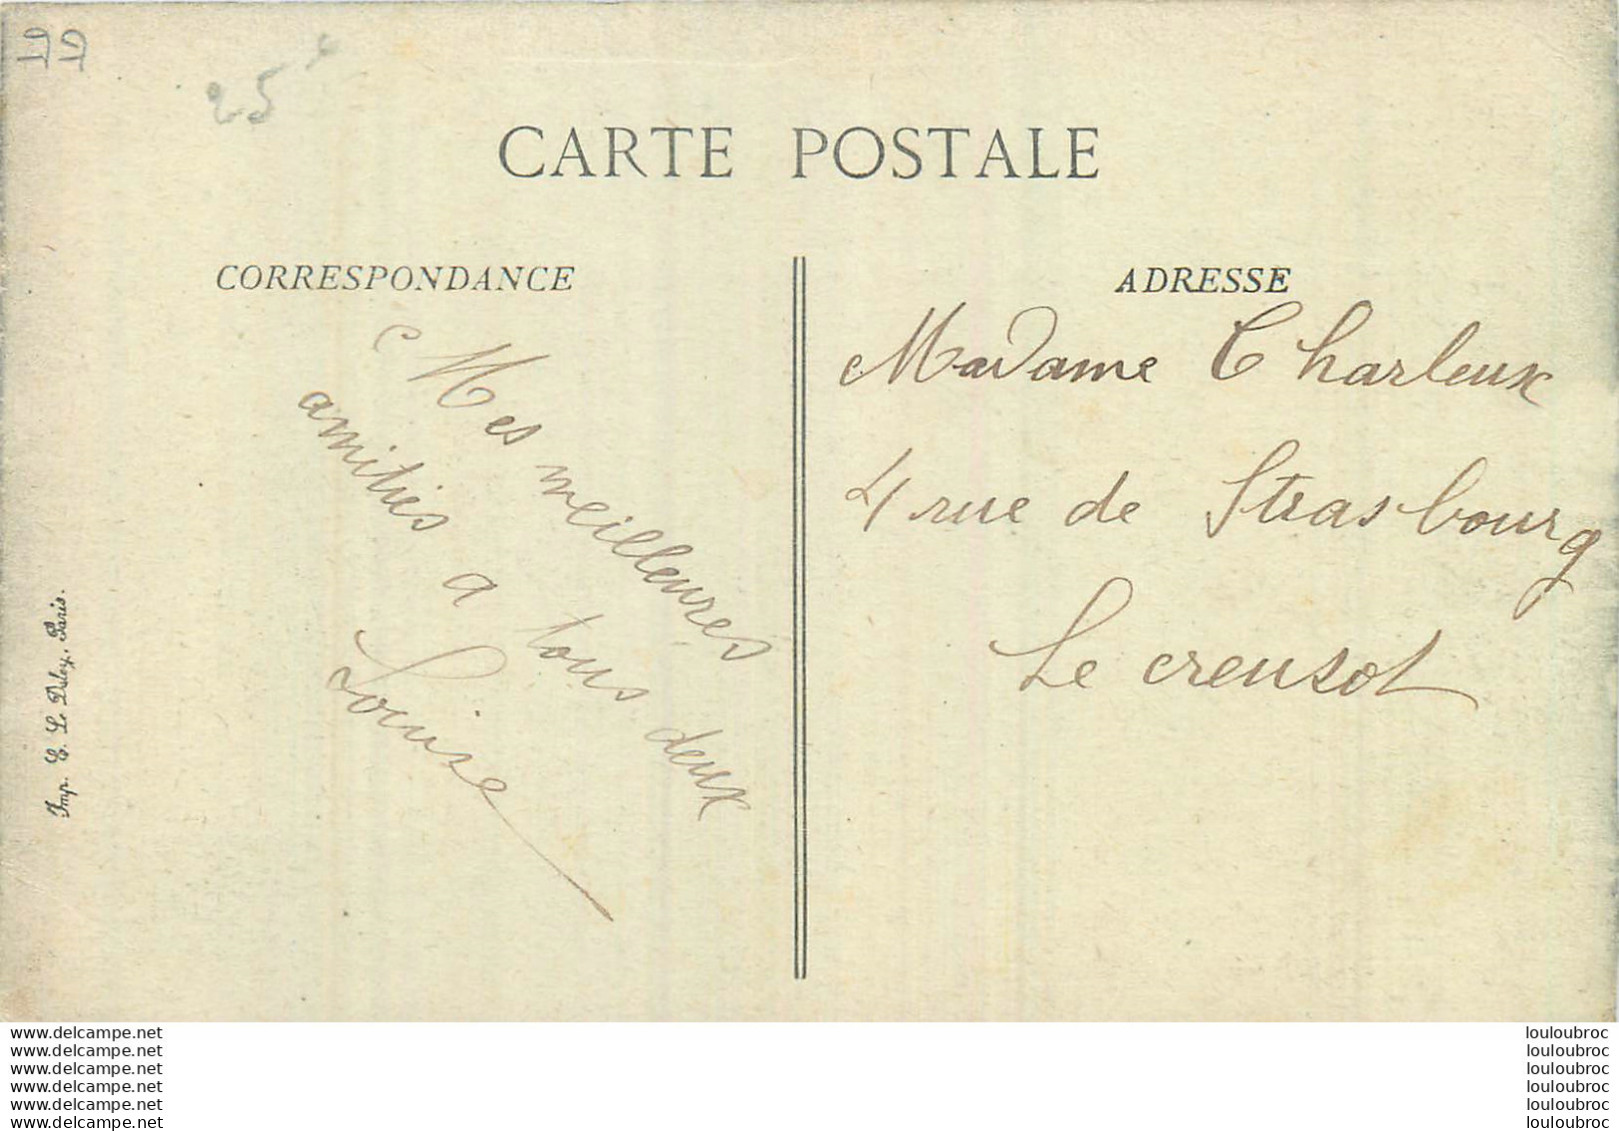 25
CARTE POSTALE
CORRESPONDANCE
Mes meilleures
amitiés a tous deux
Louise
ADRESSE
Madame Charleux
4 rue de Strasbourg
Le creusot
Imp. E. Le Deley, Paris.
www.delcampe.net
www.delcampe.net
www.delcampe.net
www.delcampe.net
www.delcampe.net
www.delcampe.net
louloubroc
louloubroc
louloubroc
louloubroc
louloubroc
louloubroc